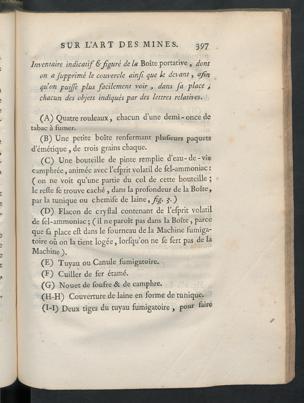 SUR L'ART DES MINES. 397
Inventaire indicatif & figuré de la Boîte portative, dont
on a supprimé le couvercle ainsi que le devant, afin
qu'on puisse plus facilement voir, dans sa place,
chacun des objets indiqués par des lettres relatives.
(A) Quatre rouleaux, chacun d'une demi-once de
tabac à fumer.
(B) Une petite boîte renfermant plusieurs paquets
d'émétique, de trois grains chaque.
(C) Une bouteille de pinte remplie d'eau-de-vie
camphrée, animée avec l'esprit volatil de sel-ammoniac:
(on ne voit qu'une partie du col de cette bouteille;
le reste se trouve caché, dans la profondeur de la Boîte,
par la tunique ou chemise de laine, fig. 3.)
(D) Flacon de crystal contenant de l'esprit volatil
de sel-ammoniac; (il ne paroît pas dans la Boîte, parce
que sa place est dans le fourneau de la Machine fumiga-
toire où on la tient logée, lorsqu'on ne se sert pas de la
Machine).
(E) Tuyau ou Canule fumigatoire.
(F) Cuiller de fer étamé.
(G) Nouet de soufre & de camphre.
(H-H) Couverture de laine en forme de tunique.
(I-I) Deux tiges du tuyau fumigatoire, pour faire